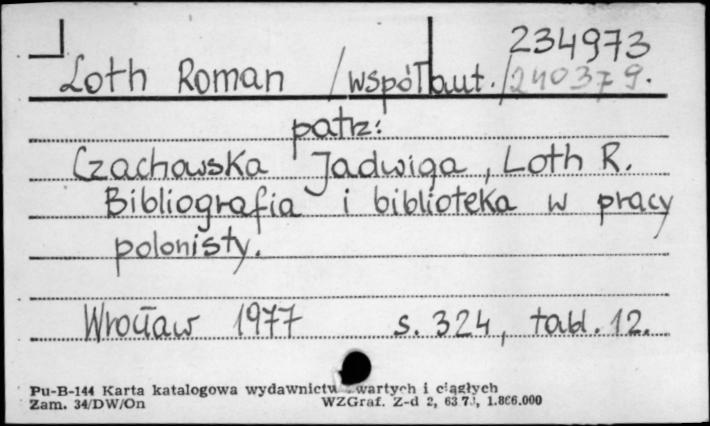 234973
Loth Roman /współaut./ 240379.
patrz:
Czachowska Jadwiga, Loth R.
Bibliografia i biblioteka w pracy
polonisty.
Wrocław 1977 s. 324, tabl. 12.
Pu-B-144 Karta katalogowa wydawnictw zwartych i ciągłych
Zam. 34/DW/On WZGraf. Z-d 2, 1.866.000